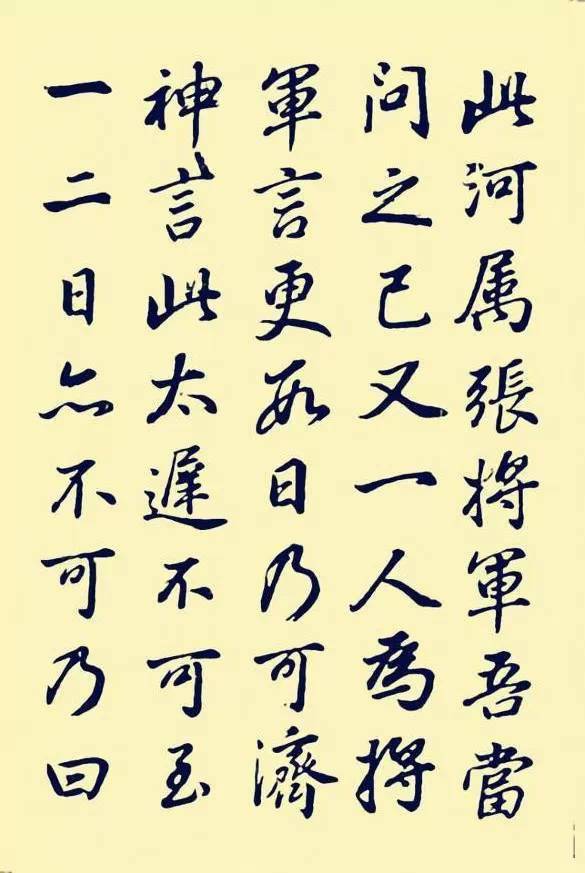 此河属張將軍吾當
問之已又一人為將
軍言更數日乃可濟
神言此太遲不可至
一二日亦不可乃曰